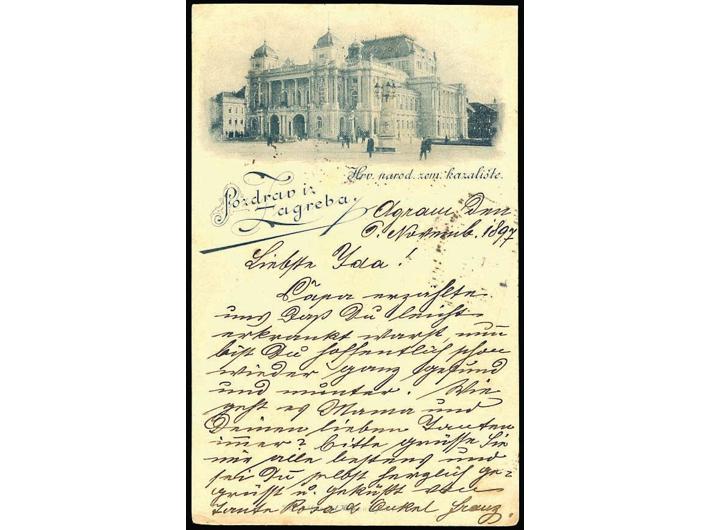 Hrv. narod. zem. kazalište.
Pozdrav iz
Zagreba.
Agram, den
9. Novemb. 1897
Liebste Ida!
Papa erzählte
uns daß Du leicht
erkrankt warst nun
bist Du hoffentlich schon
wieder ganz gesund
und munter. Wie
geht es Mama und
Deinen lieben Tanten
immer? bitte grüsse Sie
mir alle bestens und
sei Du selbst herzlich ge-
grüsst u. geküßt von
Tante Rosa & Onkel Franz.